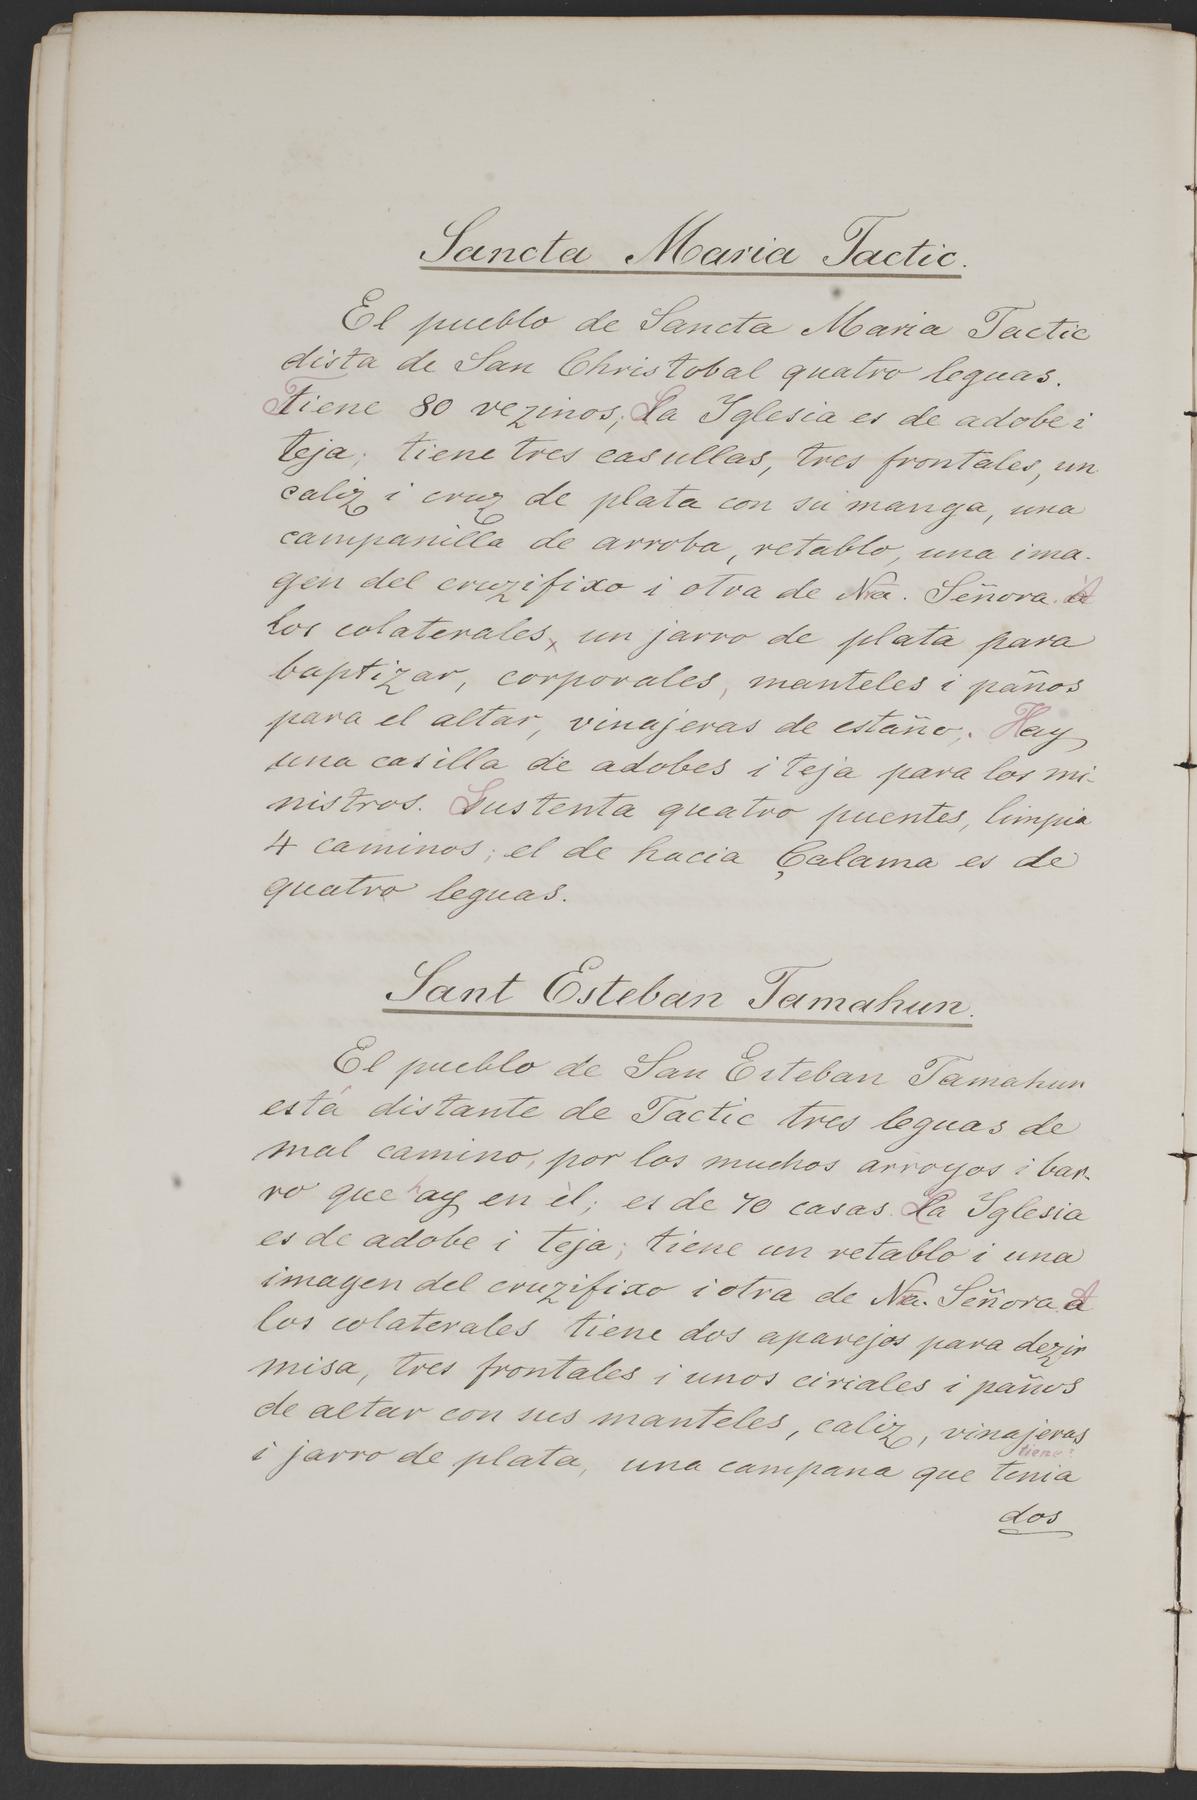 Sancta Maria Tactic.
El pueblo de Sancta Maria Tactic
dista de San Christobal quatro leguas.
Tiene 80 vezinos; La Yglesia es de adobe i
teja; tiene tres casullas, tres frontales, un
caliz i cruz de plata con su manga, una
campanilla de arroba, retablo, una ima-
gen del cruzifixo i otra de Nra. Señora. A
los colaterales, un jarro de plata para
baptizar, corporales, manteles i paños
para el altar, vinajeras de estaño,. Hay
una casilla de adobes i teja para los mi-
nistros. Sustenta quatro puentes, limpia
4 caminos; el de hacia Çalama es de
quatro leguas.
Sant Esteban Tamahun.
El pueblo de San Esteban Tamahun
está distante de Tactic tres leguas de
mal camino, por los muchos arroyos i bar-
ro que hay en èl; es de 70 casas. La Yglesia
es de adobe i teja; tiene un retablo i una
imagen del cruzifixo i otra de Nra. Señora. A
los colaterales tiene dos aparejos para dezir
misa, tres frontales i unos ciriales i paños
de altar con sus manteles, caliz, vinajeras
tiene?
i jarro de plata, una campana que tenia
dos